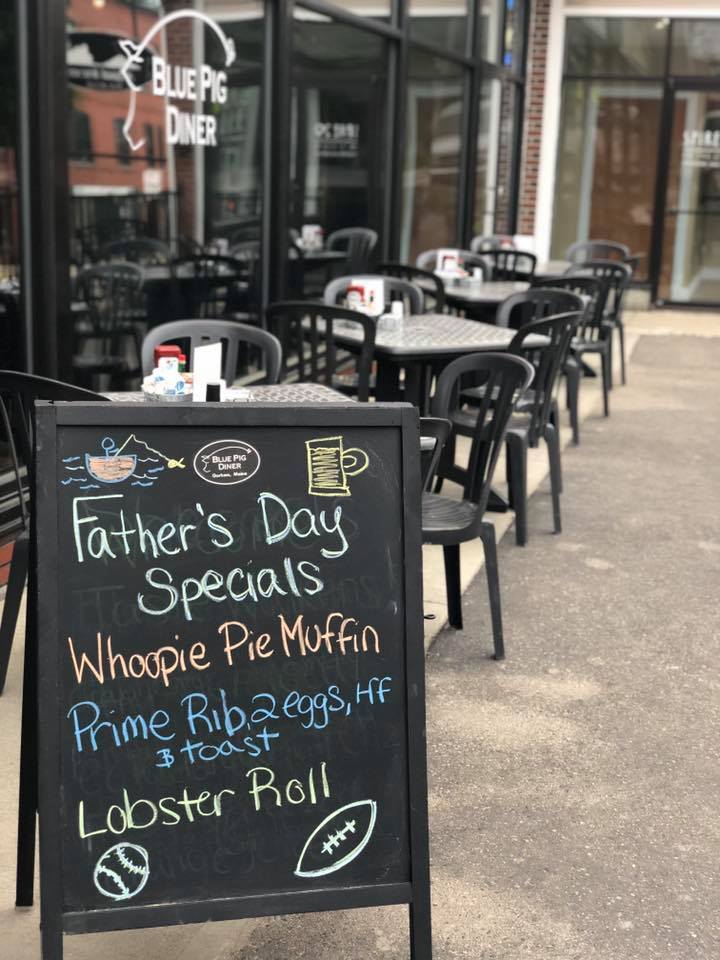 BLUE PIG
DINER
BLUE PIG
DINER
Gorham, Maine
Father's Day
Specials
Whoopie Pie Muffin
Prime Rib, 2 eggs, HF
& toast
Lobster Roll